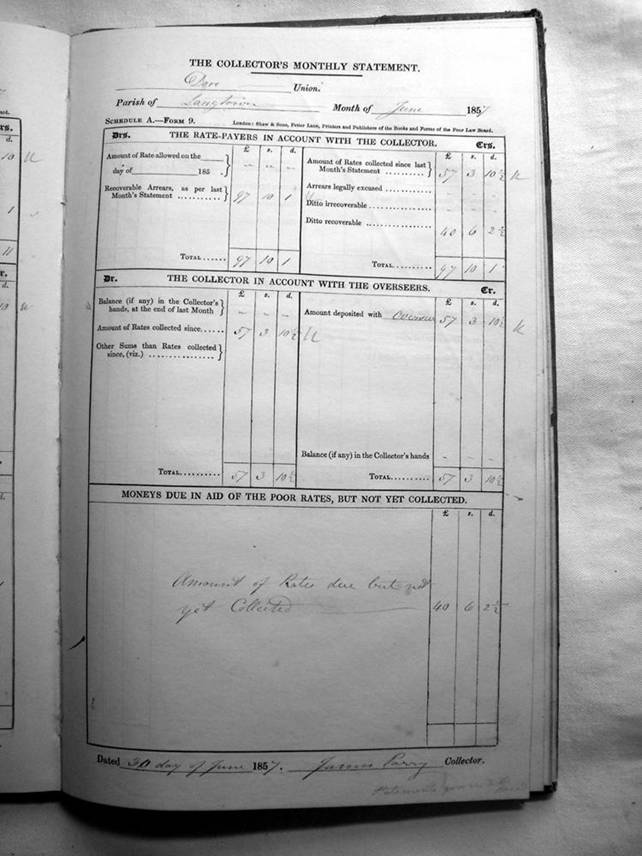 THE COLLECTOR'S MONTHLY STATEMENT.
Dore Union.
Parish of Longtown Month of June 1857
SCHEDULE A.—FORM 9. London: Shaw & Sons, Fetter Lane, Printers and Publishers of the Books and Forms of the Poor Law Board.
Drs. THE RATE-PAYERS IN ACCOUNT WITH THE COLLECTOR. Crs.
£ s. d.
Amount of Rate allowed on the
day of 185 } – – –
Recoverable Arrears, as per last
Month's Statement } 97 10 1
TOTAL 97 10 1
£ s. d.
Amount of Rates collected since last
Month's Statement 57 3 10½
Arrears legally excused
Ditto irrecoverable
Ditto recoverable 40 6 2½
TOTAL 97 10 1
Dr. THE COLLECTOR IN ACCOUNT WITH THE OVERSEERS. Cr.
£ s. d.
Balance (if any) in the Collector's
hands, at the end of last Month } – – –
Amount of Rates collected since 57 3 10½
Other Sums than Rates collected
since, (viz.) }
TOTAL 57 3 10½
£ s. d.
Amount deposited with Overseers 57 3 10½
Balance (if any) in the Collector's hands – – –
TOTAL 57 3 10½
MONEYS DUE IN AID OF THE POOR RATES, BUT NOT YET COLLECTED.
£ s. d.
Amount of Rates due but not
yet Collected 40 6 2½
Dated 30 day of June 1857. James Parry Collector.